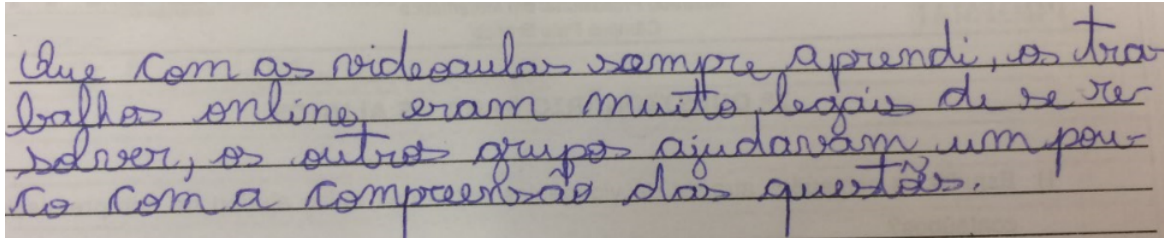 Que com as videoaulas sempre aprendi, os tra
balhos online, eram muito legais de se re-
solver, os outros grupos ajudavam um pou-
co com a compreensão das questões.